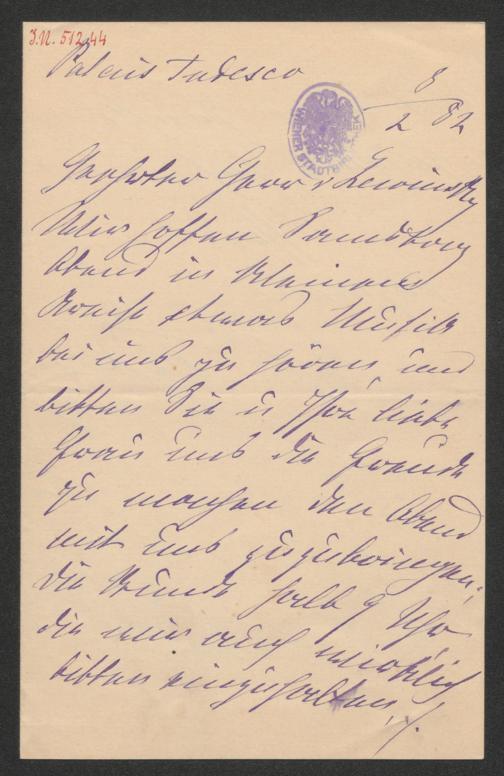 J.N. 51244
Palais Todesco
8/2 82
WIENER STADTBIBLIOTHEK
Geehrter Herr v Lewinsky
Wir hoffen Samstag
Abend in kleinem
Kreise etwas Musik
bei uns zu hören, und
bitten Sie u Ihre liebe
Frau uns die Freude
zu machen den Abend
mit uns zuzubringen;
die Stunde halb 9 Uhr
die wir auch wirklich
bitten einzuhalten,